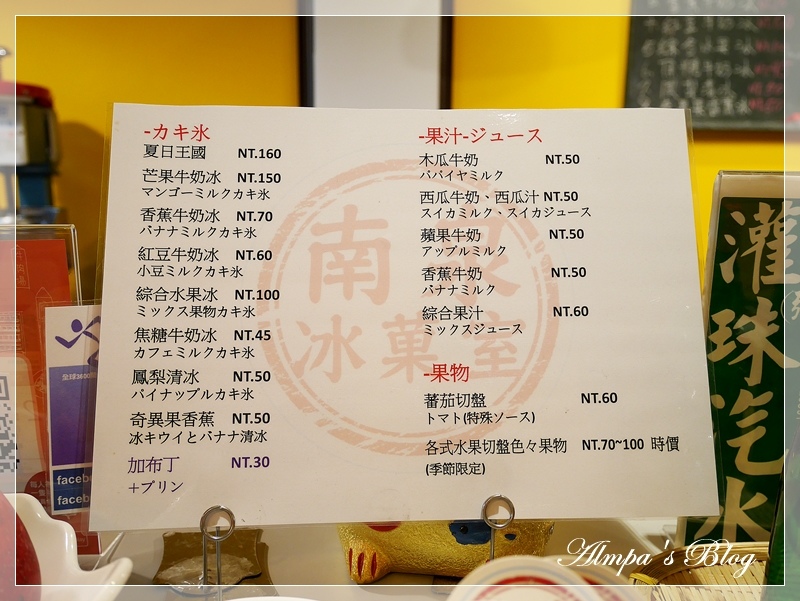 -カキ氷
夏日王國 NT.160
芒果牛奶冰 NT.150
マンゴーミルクカキ氷
香蕉牛奶冰 NT.70
バナナミルクカキ氷
紅豆牛奶冰 NT.60
小豆ミルクカキ氷
綜合水果冰 NT.100
ミックス果物カキ氷
焦糖牛奶冰 NT.45
カフェミルクカキ氷
鳳梨清冰 NT.50
バイナップルカキ氷
奇異果香蕉 NT.50
冰キウイとバナナ清冰
加布丁 NT.30
+プリン
-果汁-ジュース
木瓜牛奶 NT.50
パパイヤミルク
西瓜牛奶、西瓜汁 NT.50
スイカミルク、スイカジュース
蘋果牛奶 NT.50
アップルミルク
香蕉牛奶 NT.50
バナナミルク
綜合果汁 NT.60
ミックスジュース
-果物
蕃茄切盤 NT.60
トマト(特殊ソース)
各式水果切盤色々果物 NT.70~100 時價
(季節限定)
南泉
冰菓室
灌珠汽水
全球
facebo
facebo
Almpa's Blog